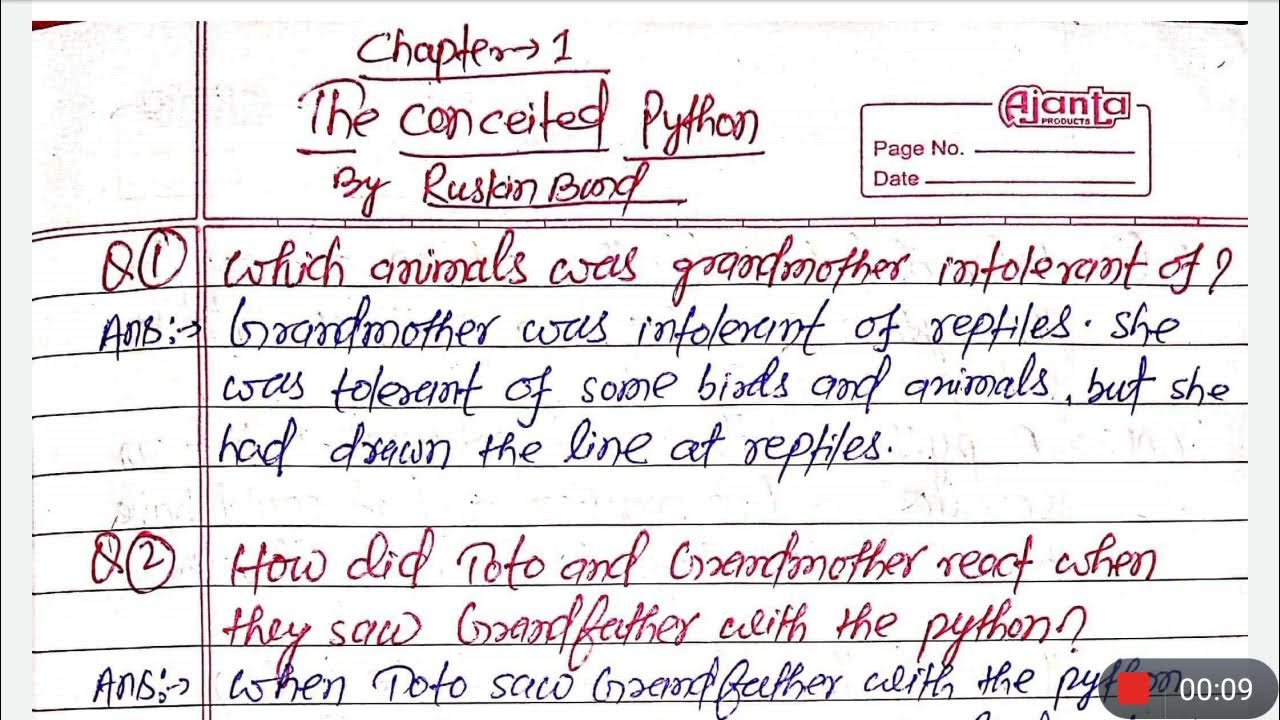 Chapter→1
The conceited Python
By Ruskin Bond
Ajanta
PRODUCTS
Page No.
Date
Q.① Which animals was grandmother intolerant of?
Ans:→ Grandmother was intolerant of reptiles. she
was tolerant of some birds and animals, but she
had drawn the line at reptiles.
Q.② How did Toto and Grandmother react when
they saw Grandfather with the python?
Ans:→ When Toto saw Grandfather with the python
00:09